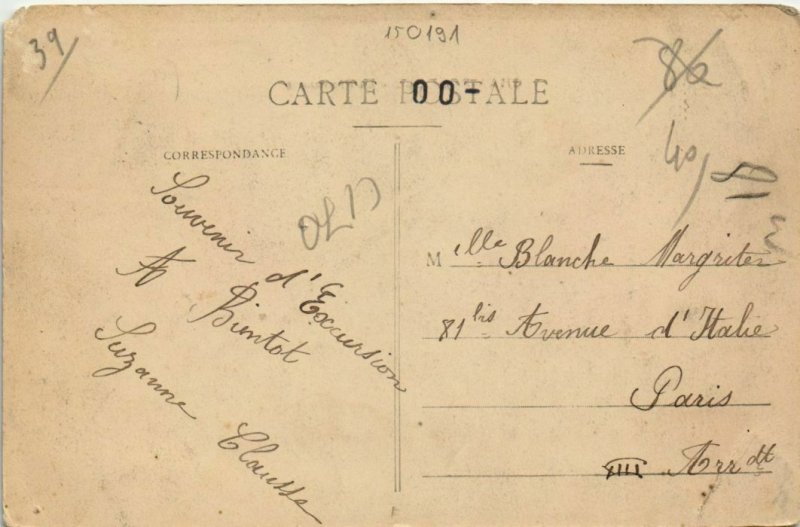 39/
150191
86
CARTE POSTALE
00-
CORRESPONDANCE
ADRESSE
40/
Souvenir d'Excursion
A Bientot
Suzanne Clausse
Mlle Blanche Margriter
81 bis Avenue d'Italie
Paris
Arrdt